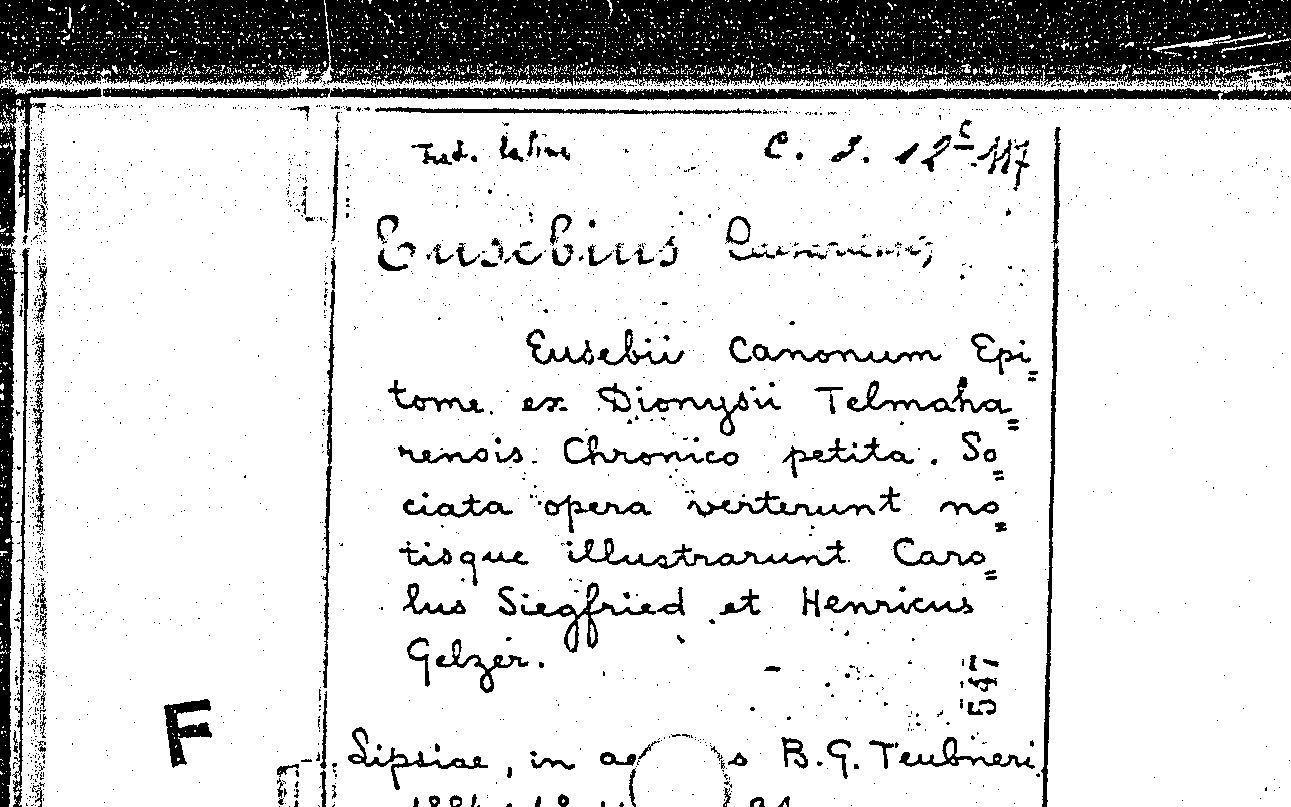 Trad. latine C. 3. 12ᶜ 117
Eusebius Caesariensis
Eusebii Canonum Epi=
tome ex Dionysii Telmaha=
rensis Chronico petita. So=
ciata opera verterunt no=
tisque illustrarunt Caro=
lus Siegfried et Henricus
Gelzer.
547
F
Lipsiae, in ae s B.G. Teubneri